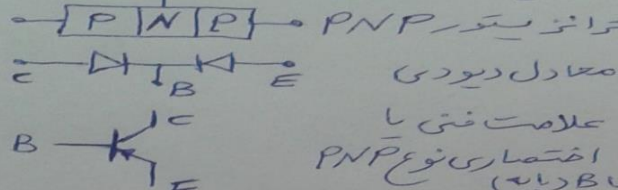 P N P ترانزیستور PNP
C B E معادل دیودی
علامت فنی یا
B C E
اختصاری نوع PNP
B (پایه)